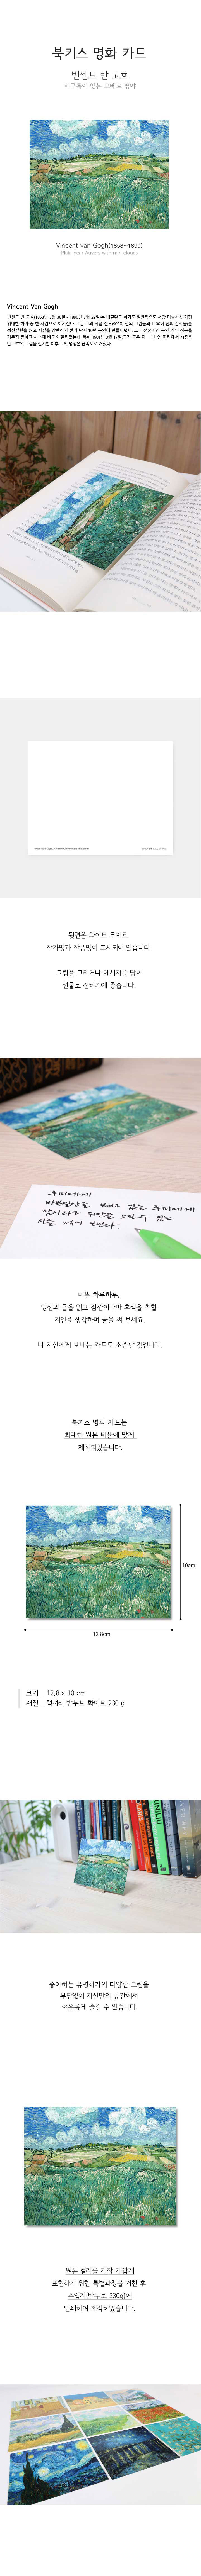 북키스 명화 카드
빈센트 반 고흐
비구름이 있는 오베르 평야
Vincent van Gogh(1853~1890)
Plain near Auvers with rain clouds
Vincent Van Gogh
빈센트 반 고흐(1853년 3월 30일~ 1890년 7월 29일)는 네덜란드 화가로 일반적으로 서양 미술사상 가장
위대한 화가 중 한 사람으로 여겨진다. 그는 그의 작품 전부(900여 점의 그림들과 1100여 점의 습작들)를
정신질환을 앓고 자살을 감행하기 전의 단지 10년 동안에 만들어냈다. 그는 생존기간 동안 거의 성공을
거두지 못하고 사후에 비로소 알려졌는데, 특히 1901년 3월 17일(그가 죽은 지 11년 후) 파리에서 71점의
반 고흐의 그림을 전시한 이후 그의 명성은 급속도로 커졌다.
뒷면은 화이트 무지로
작가명과 작품명이 표시되어 있습니다.
그림을 그리거나 메시지를 담아
선물로 전하기에 좋습니다.
바쁜 하루하루,
당신의 글을 읽고 잠깐이나마 휴식을 취할
지인을 생각하며 글을 써 보세요.
나 자신에게 보내는 카드도 소중할 것입니다.
북키스 명화 카드는
최대한 원본 비율에 맞게
제작되었습니다.
10cm
12.8cm
크기 _ 12.8 x 10 cm
재질 _ 럭셔리 반누보 화이트 230 g
좋아하는 유명화가의 다양한 그림을
부담없이 자신만의 공간에서
여유롭게 즐길 수 있습니다.
원본 컬러를 가장 가깝게
표현하기 위한 특별과정을 거친 후
수입지(반누보 230g)에
인쇄하여 제작하였습니다.